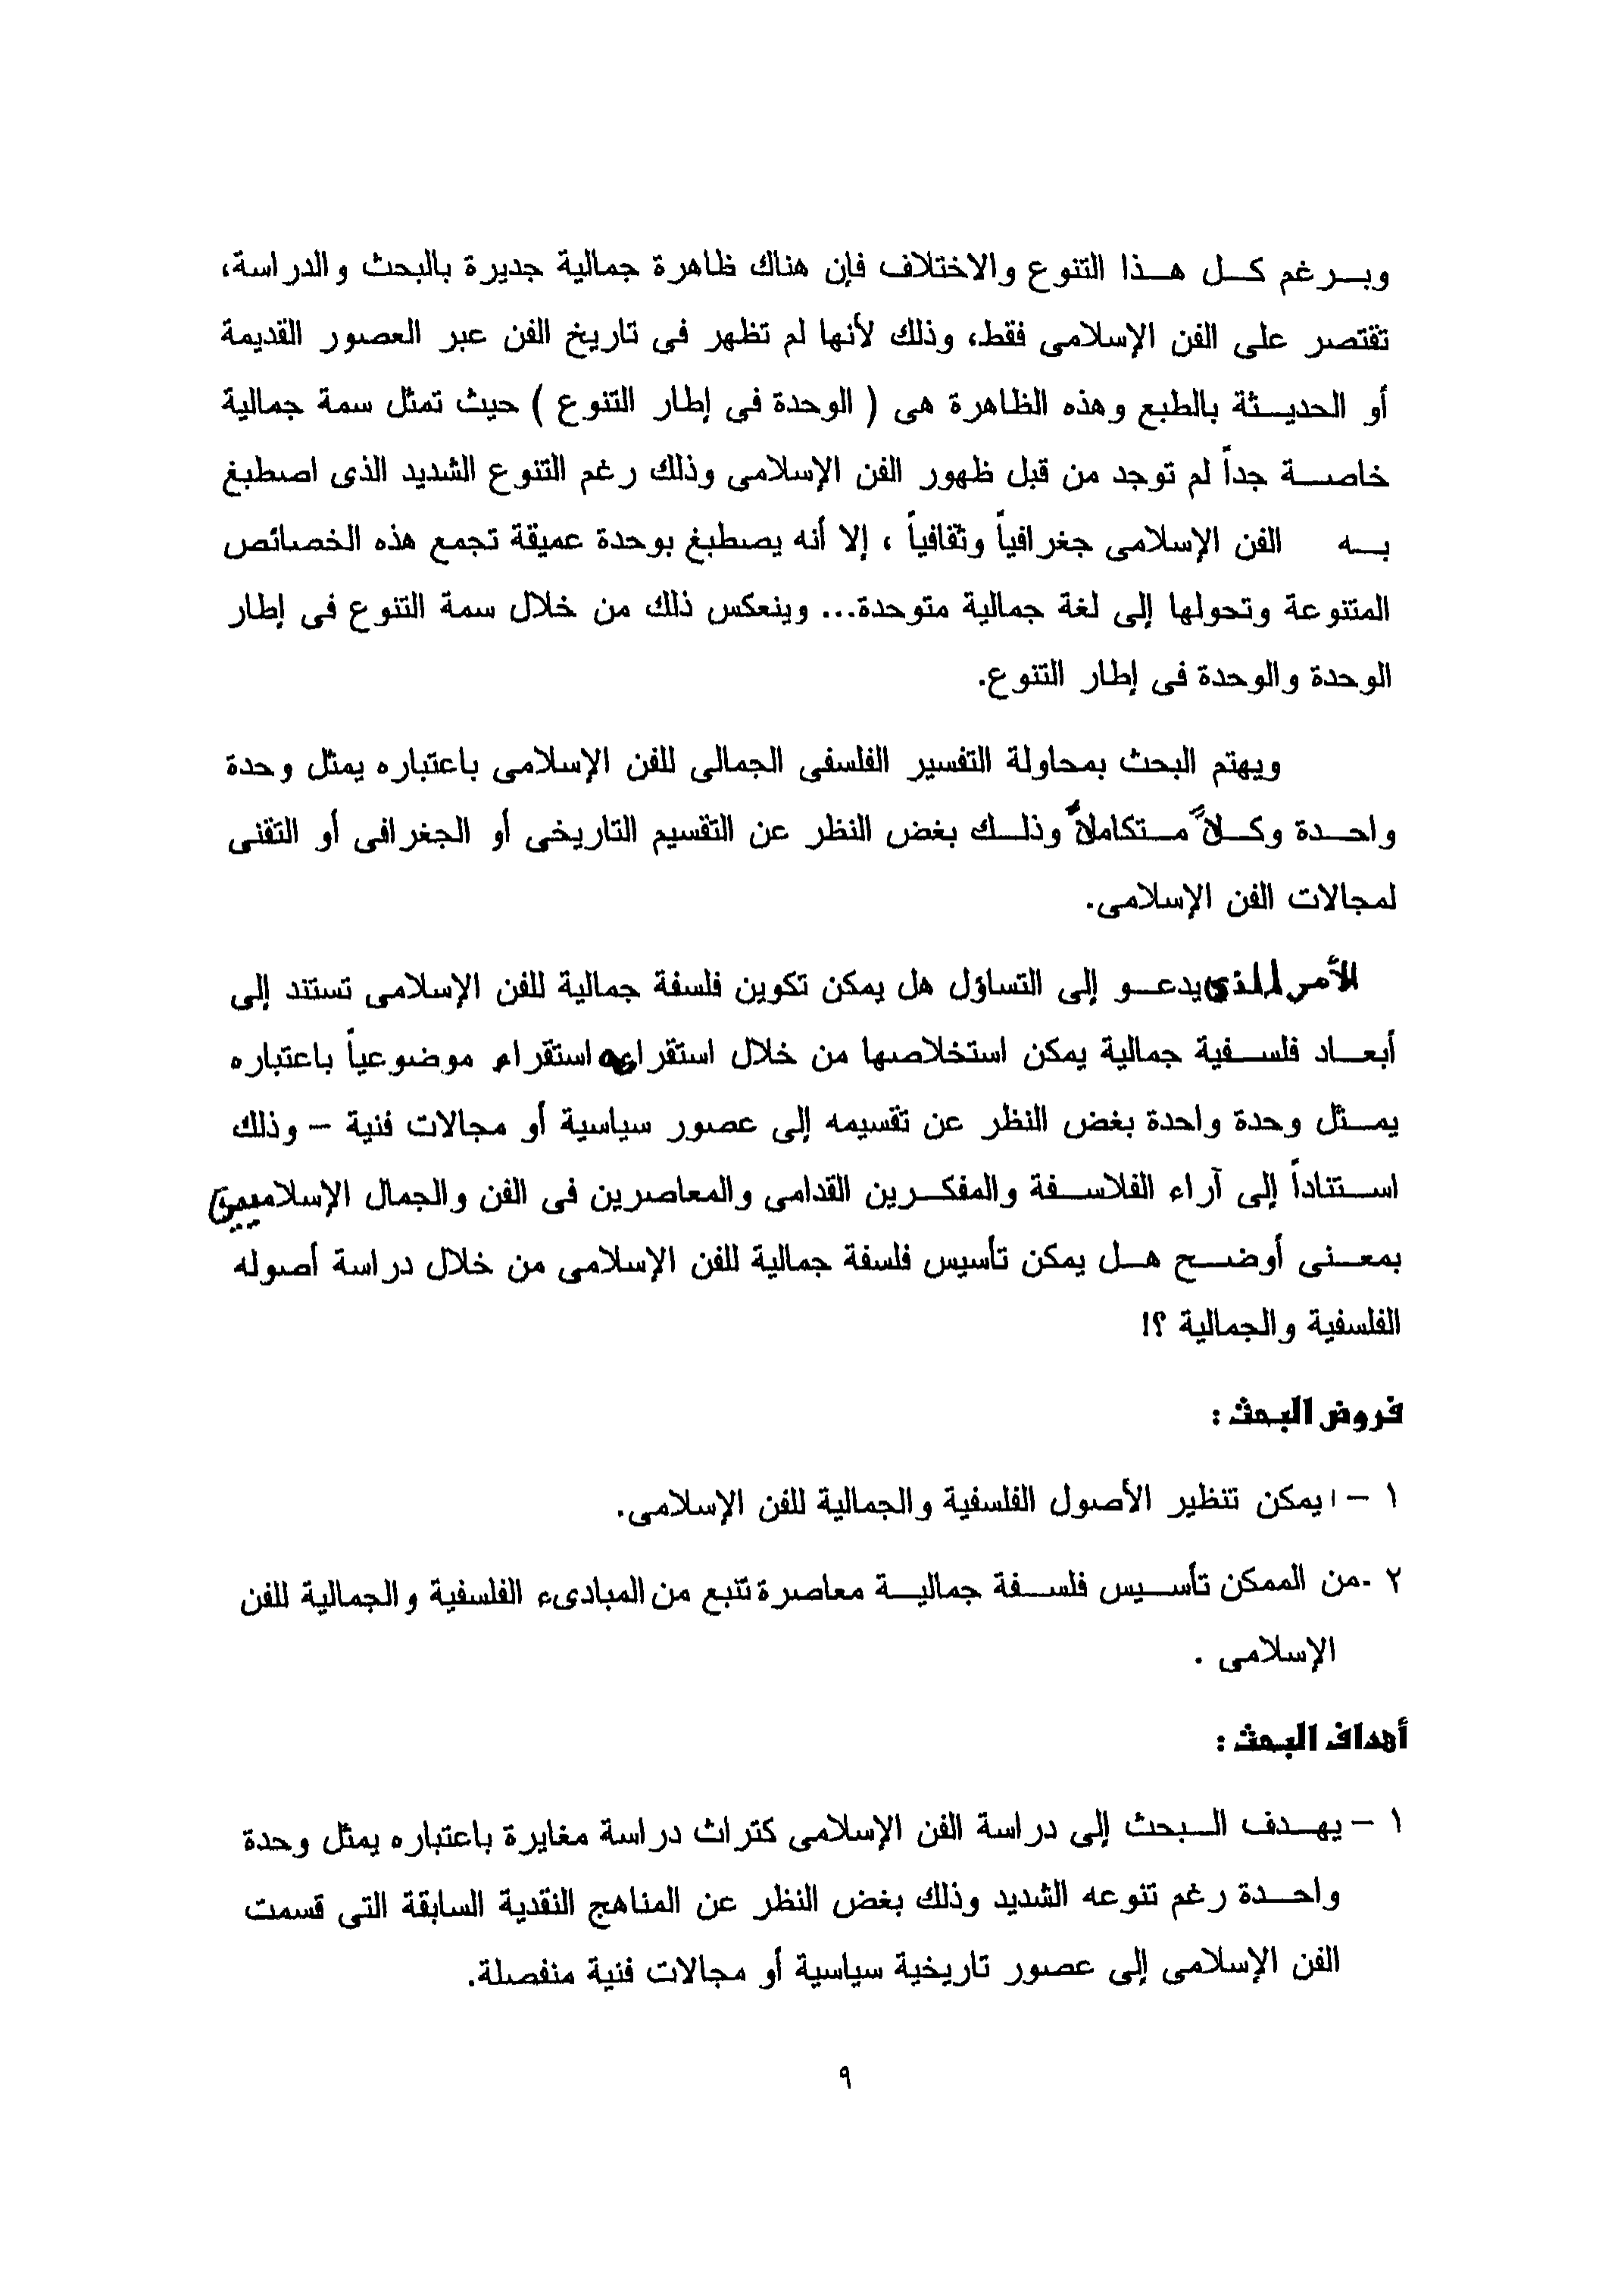 وبرغم كل هذا التنوع والاختلاف فإن هناك ظاهرة جمالية جديرة بالبحث والدراسة،
تقتصر على الفن الإسلامى فقط، وذلك لأنها لم تظهر فى تاريخ الفن عبر العصور القديمة
أو الحديثة بالطبع وهذه الظاهرة هى ( الوحدة فى إطار التنوع ) حيث تمثل سمة جمالية
خاصة جداً لم توجد من قبل ظهور الفن الإسلامى وذلك رغم التنوع الشديد الذى اصطبغ
به الفن الإسلامى جغرافياً وثقافياً ، إلا أنه يصطبغ بوحدة عميقة تجمع هذه الخصائص
المتنوعة وتحولها إلى لغة جمالية متوحدة... وينعكس ذلك من خلال سمة التنوع فى إطار
الوحدة والوحدة فى إطار التنوع.
ويهتم البحث بمحاولة التفسير الفلسفى الجمالى للفن الإسلامى باعتباره يمثل وحدة
واحدة وكلاً متكاملاً وذلك بغض النظر عن التقسيم التاريخى أو الجغرافى أو التقنى
لمجالات الفن الإسلامى.
الأمر الذى يدعو إلى التساؤل هل يمكن تكوين فلسفة جمالية للفن الإسلامى تستند إلى
أبعاد فلسفية جمالية يمكن استخلاصها من خلال استقراءه استقراء موضوعياً باعتباره
يمثل وحدة واحدة بغض النظر عن تقسيمه إلى عصور سياسية أو مجالات فنية – وذلك
استناداً إلى آراء الفلاسفة والمفكرين القدامى والمعاصرين فى الفن والجمال الإسلاميين
بمعنى أوضح هل يمكن تأسيس فلسفة جمالية للفن الإسلامى من خلال دراسة أصوله
الفلسفية والجمالية ؟!
فروض البحث :
١ – يمكن تنظير الأصول الفلسفية والجمالية للفن الإسلامى.
٢ -من الممكن تأسيس فلسفة جمالية معاصرة تنبع من المبادىء الفلسفية والجمالية للفن
الإسلامى .
أهداف البحث :
١ – يهدف البحث إلى دراسة الفن الإسلامى كتراث دراسة مغايرة باعتباره يمثل وحدة
واحدة رغم تنوعه الشديد وذلك بغض النظر عن المناهج النقدية السابقة التى قسمت
الفن الإسلامى إلى عصور تاريخية سياسية أو مجالات فنية منفصلة.
٩